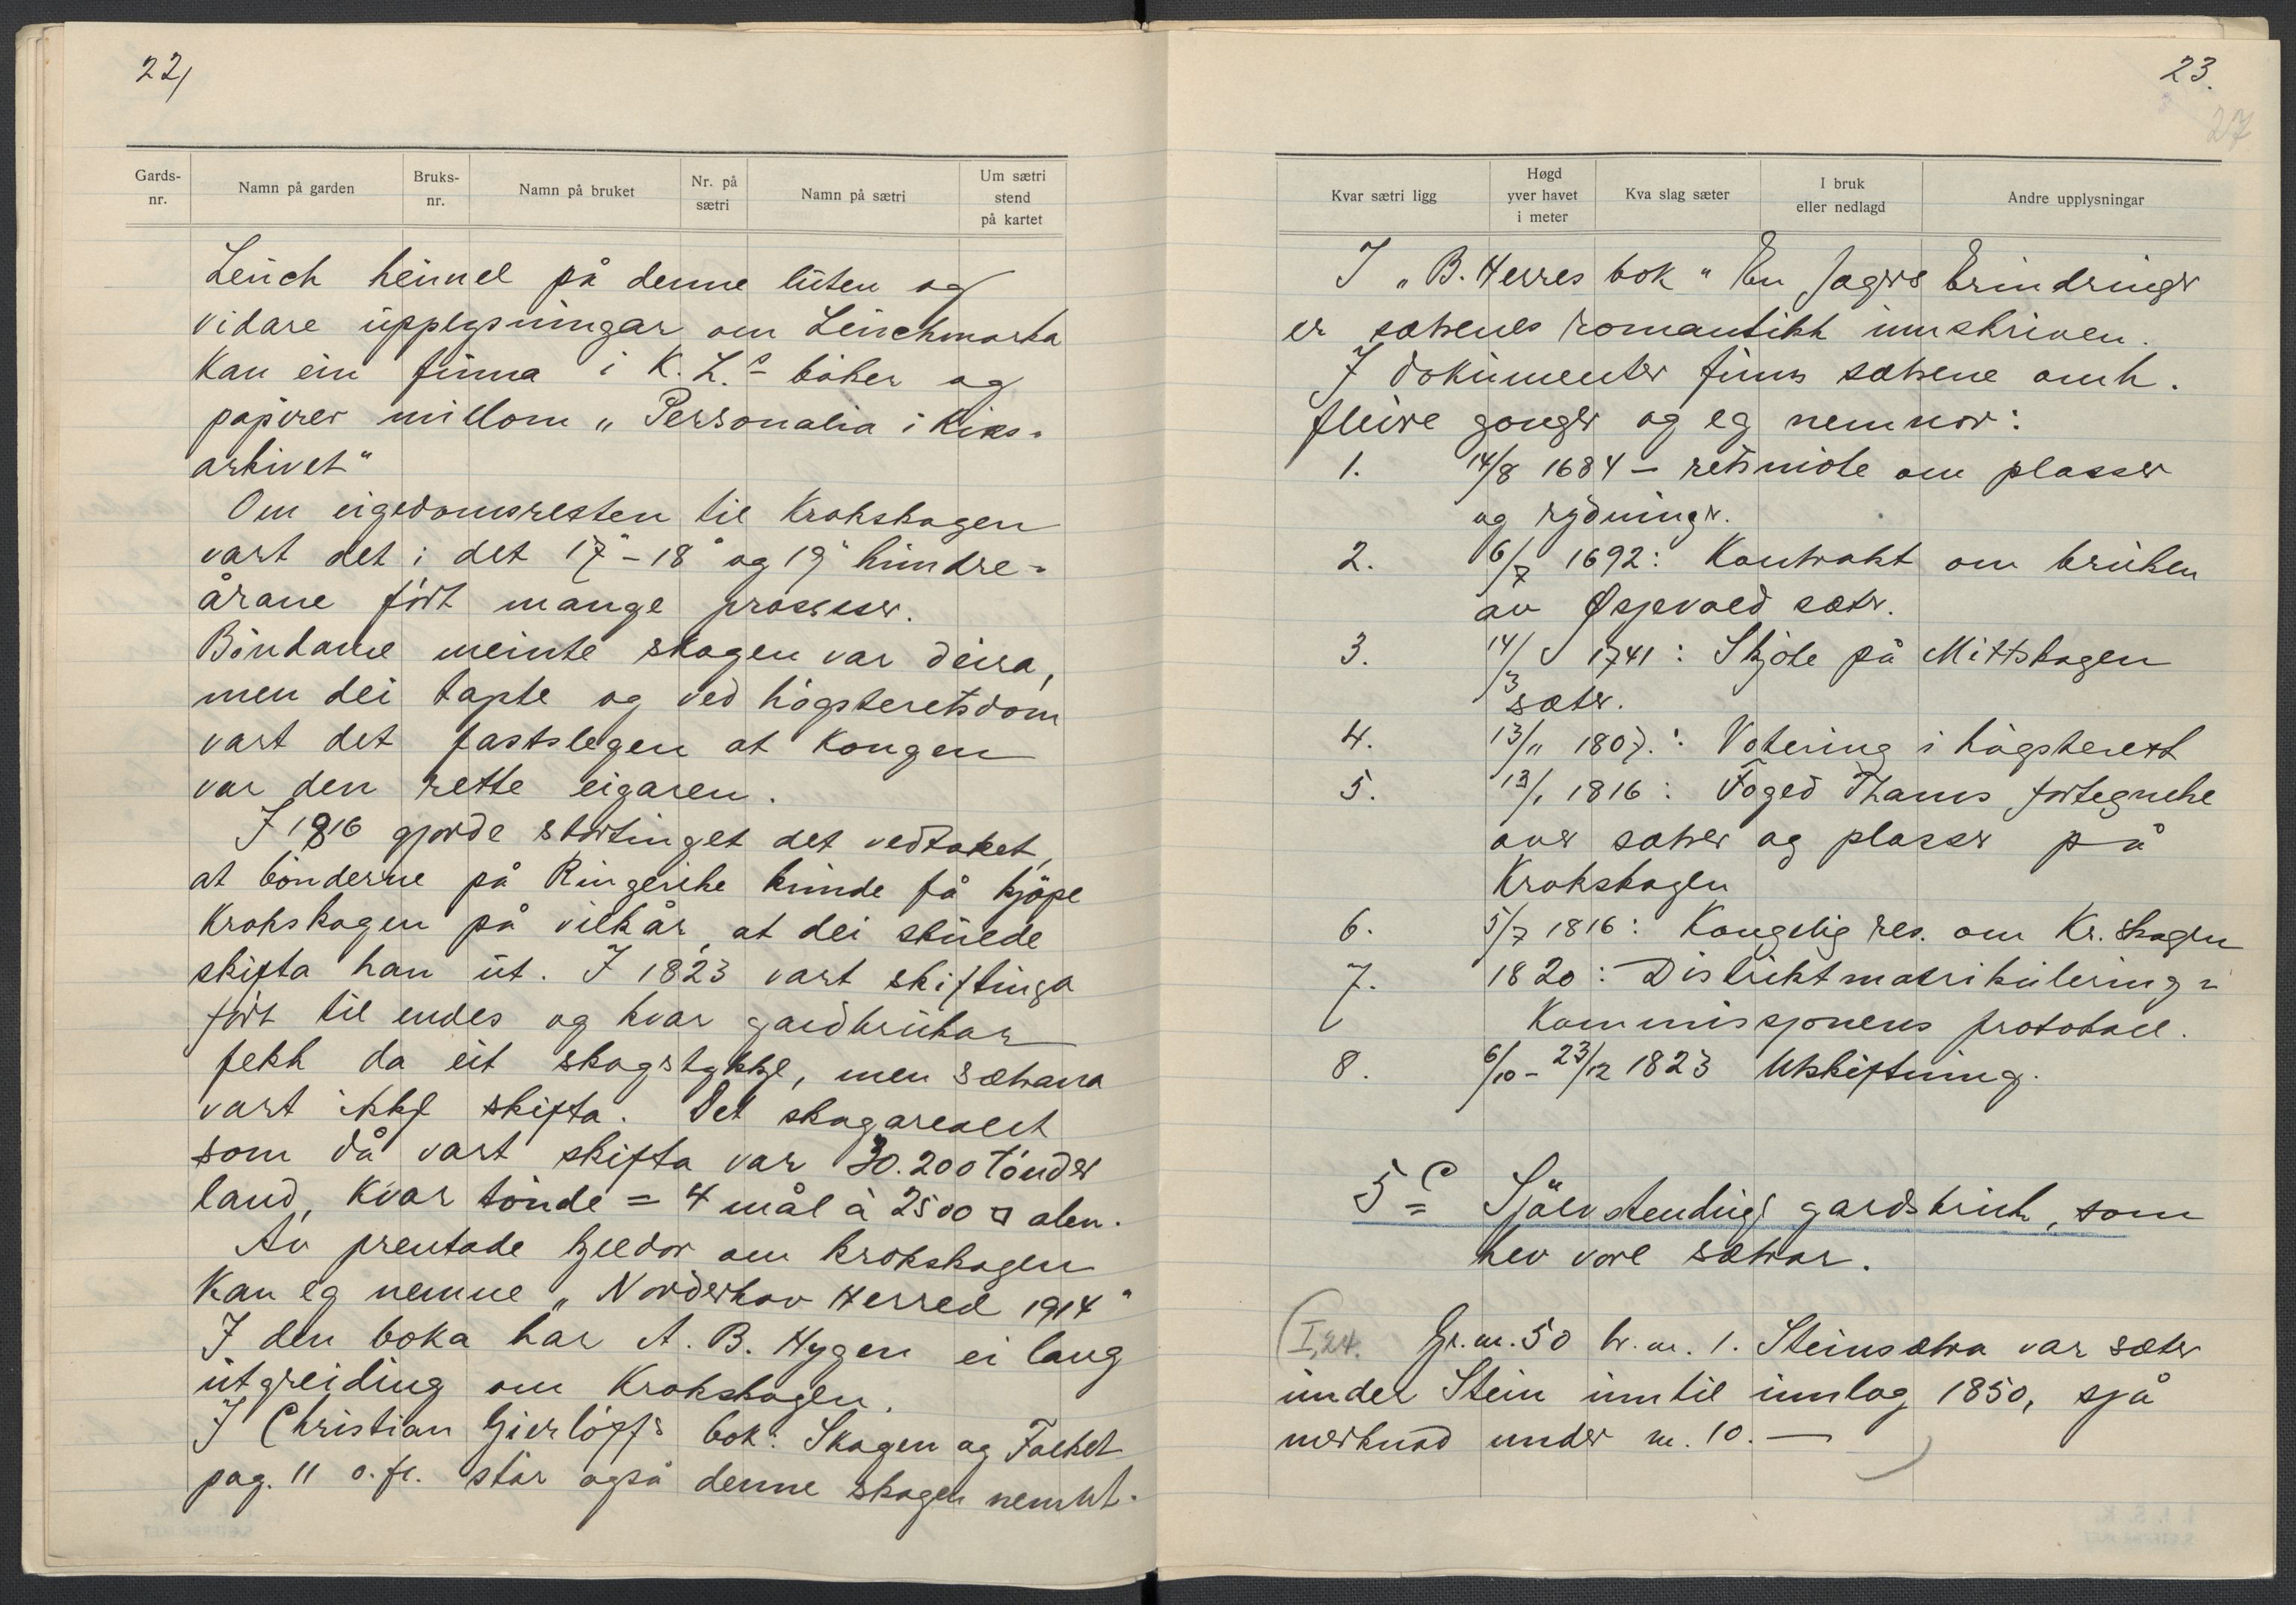 22,
Gards-
nr.
Namn på garden
Bruks-
nr.
Namn på bruket
Nr. på
sætri
Namn på sætri
Um sætri
stend
på kartet
Leuch heimel på denne luten og
vidare upplysningar om Leuchmarka
kan ein finna i K. L.s bøker og
papirer millom „Personalia i Riks-
arkivet"
Om eigedomsretten til Krokskogen
vart det i det 17de - 18de og 19de hundre-
årane ført mange prosesser.
Böndane meinte skogen var deira,
men dei tapte og ved högsteretsdom
vart det fastslegen at Kongen
var den rette eigaren.
I 1816 gjorde stortinget det vedtaket,
at bönderne på Ringerike kunde få kjöpe
Krokskogen på vilkår, at dei skulde
skifta han ut. I 1823 vart skiftinga
fört til endes og kvar gardbrukar
fekk da eit skogstykkje, men sætrara
vart ikkje skifta. Det skogarealet
som då vart skifta var 30.200 tönder
land, kvar tönde = 4 mål à 2500 □ alen.
Av prentade kjeldor om Krokskogen
kan eg nemne „Norderhov Herred 1914"
I den boka har A. B. Hygen ei lang
utgreiding om Krokskogen.
I Christian Gierlöffs bok: Skogen og Folket
pag. 11 o.fl. står også denne skogen nemnt.
23.
27
Kvar sætri ligg
Høgd
yver havet
i meter
Kva slag sæter
I bruk
eller nedlagd
Andre upplysningar
I „B. Herres bok" En Jægers Erindringer
er sætrenes romantikk innskriven.
I dokumenter finns sætrene omh.
fleire gonger og eg nemner:
1. 14/8 1684 – retsmöte om plasser
og rydninger.
2. 6/7 1692: Kontrakt om bruken
av Øspevold sæter.
3. 14/3 1741: Skjöte på Mittskogen
sæter.
4. 13/11 1807.: Votering i högsterett
5. 13/1 1816: Foged Thams fortegnelse
over sætrer og plasser på
Krokskogen
6. 5/7 1816: Kongelig res. om Kr. skogen
7. 1820: Distriktmatrikulering-
Kommissjonens protokoll.
8. 6/10 - 23/12 1823 Utskiftning.
5 c Sjölvstendige gardsbruk, som
hev vore sætrar.
(I,24. Gr. nr. 50 br. nr. 1. Steinsætra var sæter
under Stein inntil innlog 1850, sjå
merknad under nr. 10. — )